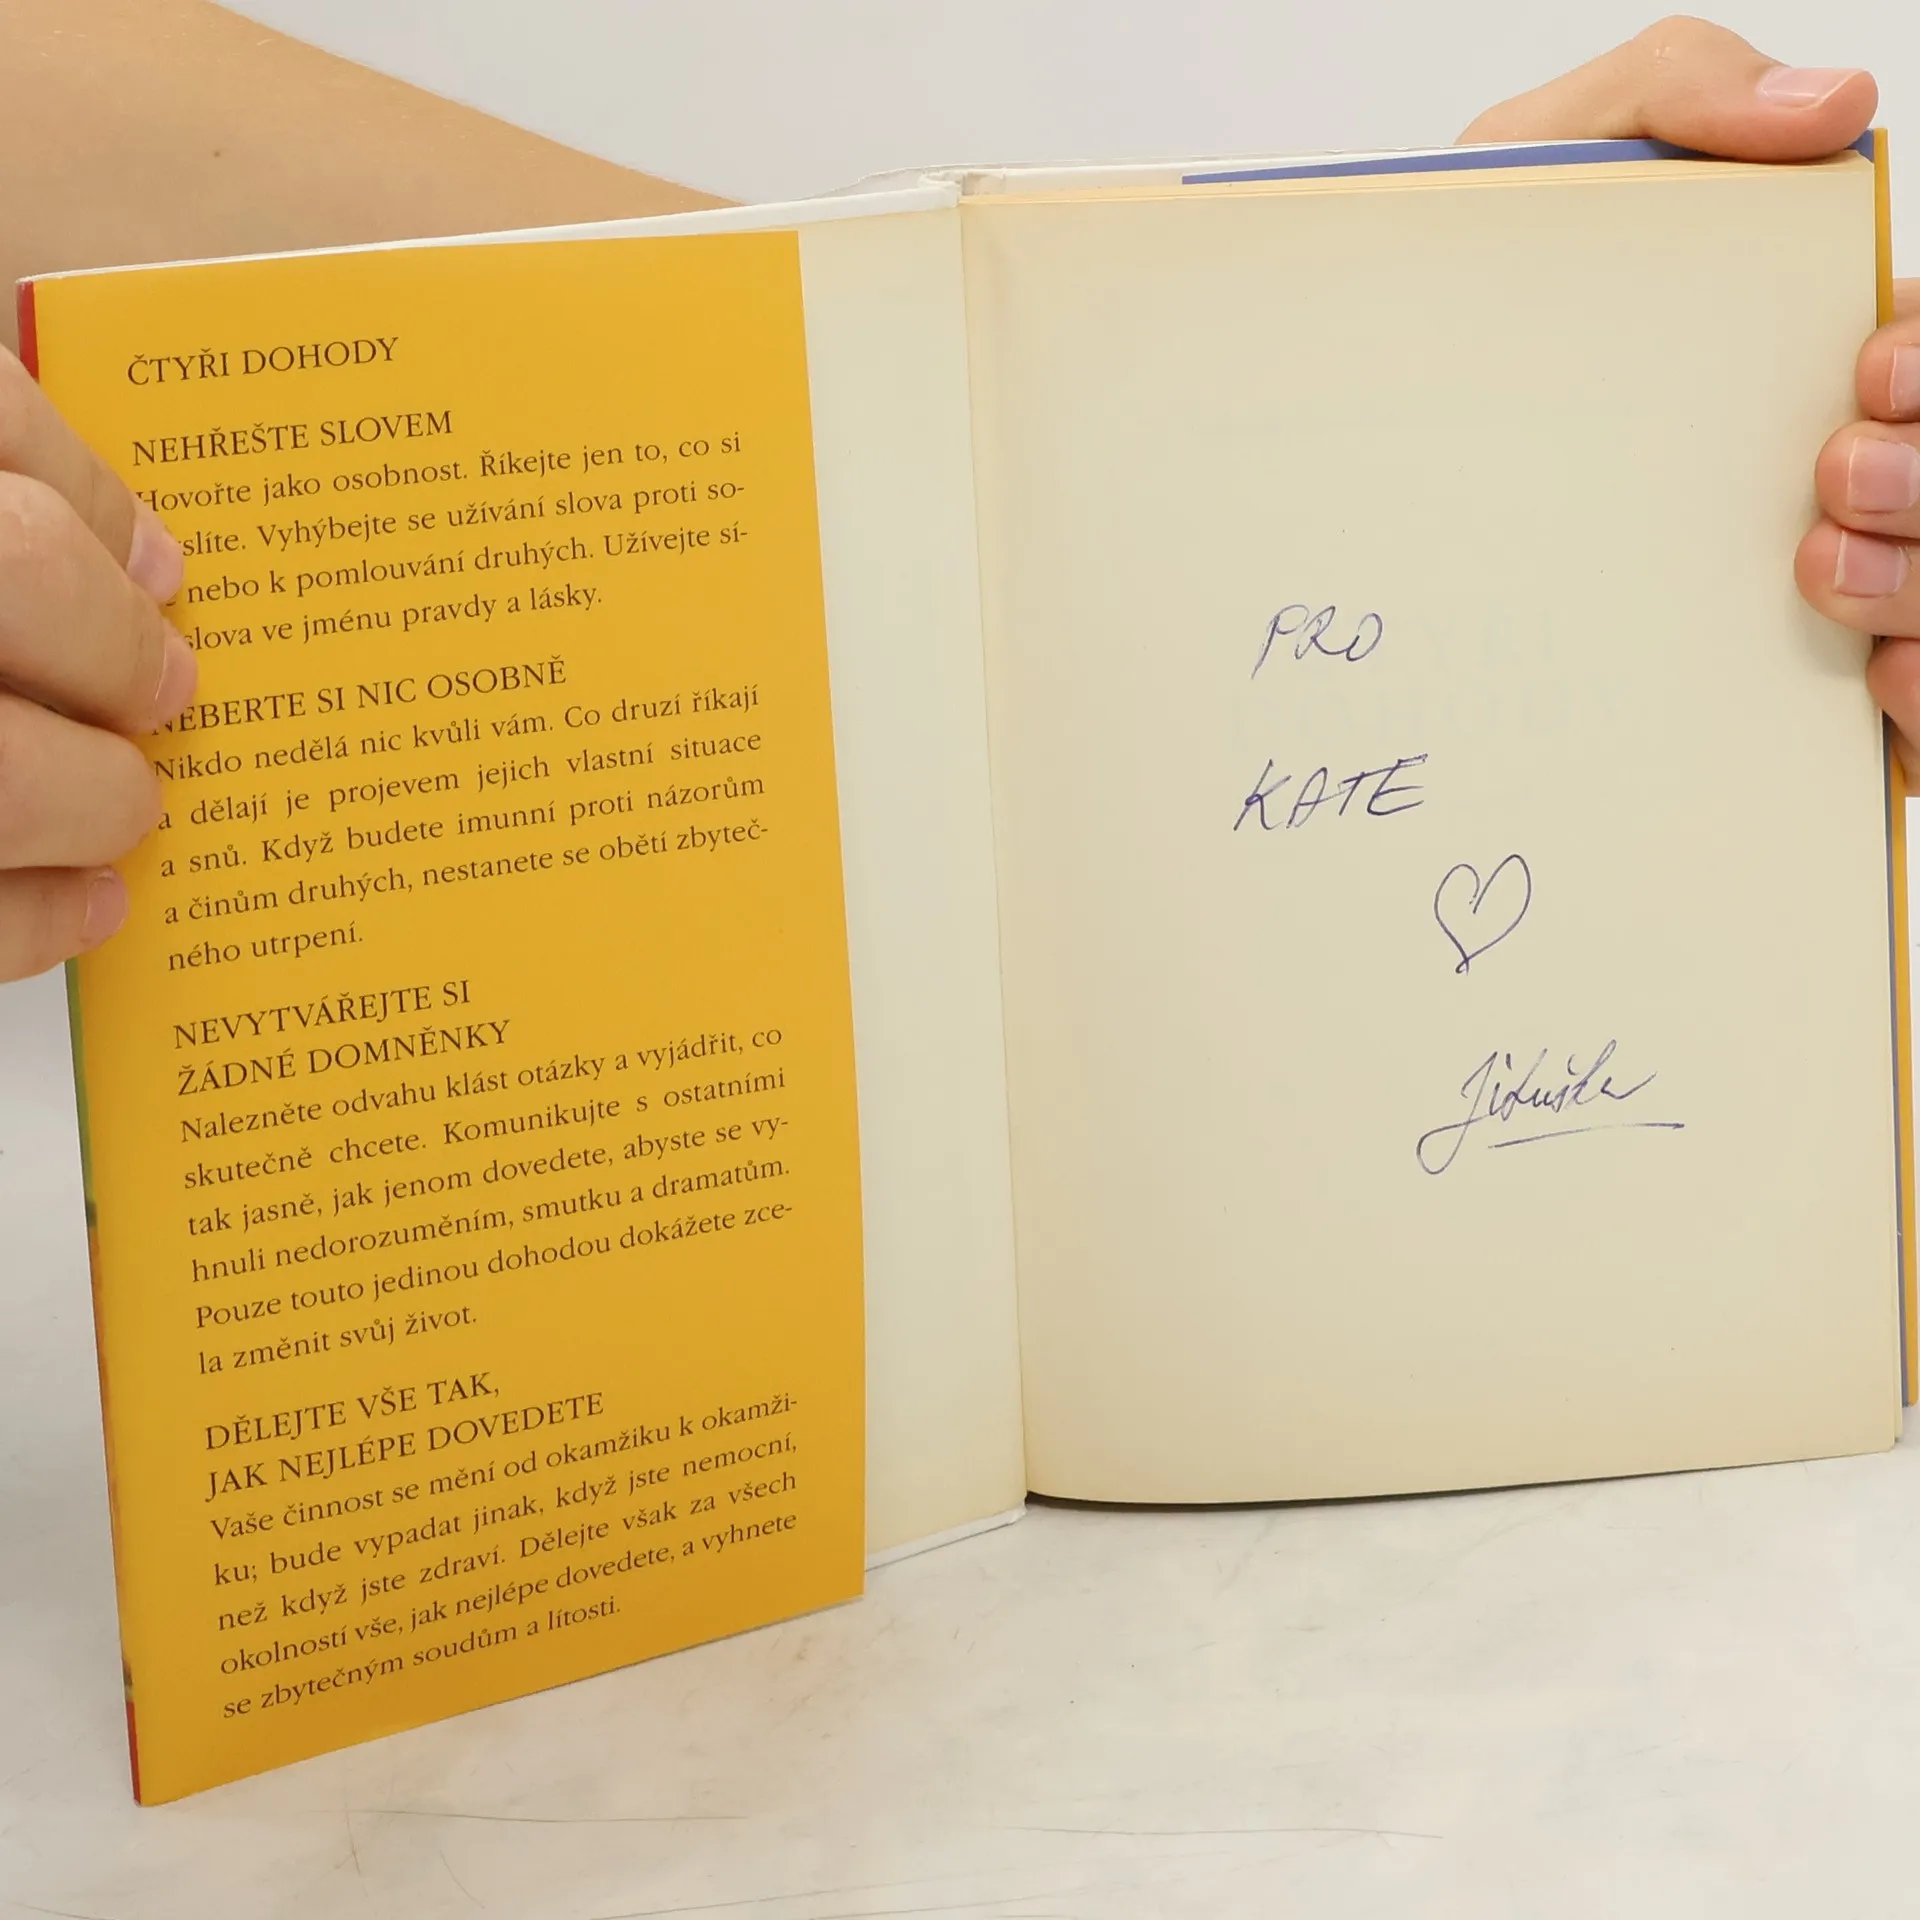 ČTYŘI DOHODY
NEHŘEŠTE SLOVEM
Hovořte jako osobnost. Říkejte jen to, co si
slíte. Vyhýbejte se užívání slova proti so-
nebo k pomlouvání druhých. Užívejte sí-
slova ve jménu pravdy a lásky.
NEBERTE SI NIC OSOBNĚ
Nikdo nedělá nic kvůli vám. Co druzí říkají
a dělají je projevem jejich vlastní situace
a snů. Když budete imunní proti názorům
a činům druhých, nestanete se obětí zbyteč-
ného utrpení.
NEVYTVÁŘEJTE SI
ŽÁDNÉ DOMNĚNKY
Nalezněte odvahu klást otázky a vyjádřit, co
skutečně chcete. Komunikujte s ostatními
tak jasně, jak jenom dovedete, abyste se vy-
hnuli nedorozuměním, smutku a dramatům.
Pouze touto jedinou dohodou dokážete zce-
la změnit svůj život.
DĚLEJTE VŠE TAK,
JAK NEJLÉPE DOVEDETE
Vaše činnost se mění od okamžiku k okamži-
ku; bude vypadat jinak, když jste nemocní,
než když jste zdraví. Dělejte však za všech
okolností vše, jak nejlépe dovedete, a vyhnete
se zbytečným soudům a lítosti.
PRO
KATE